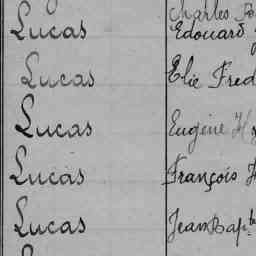 Charles
Lucas Edouard
Lucas Elie Fred
Lucas Eugène H
Lucas François
Lucas Jean Bap^te